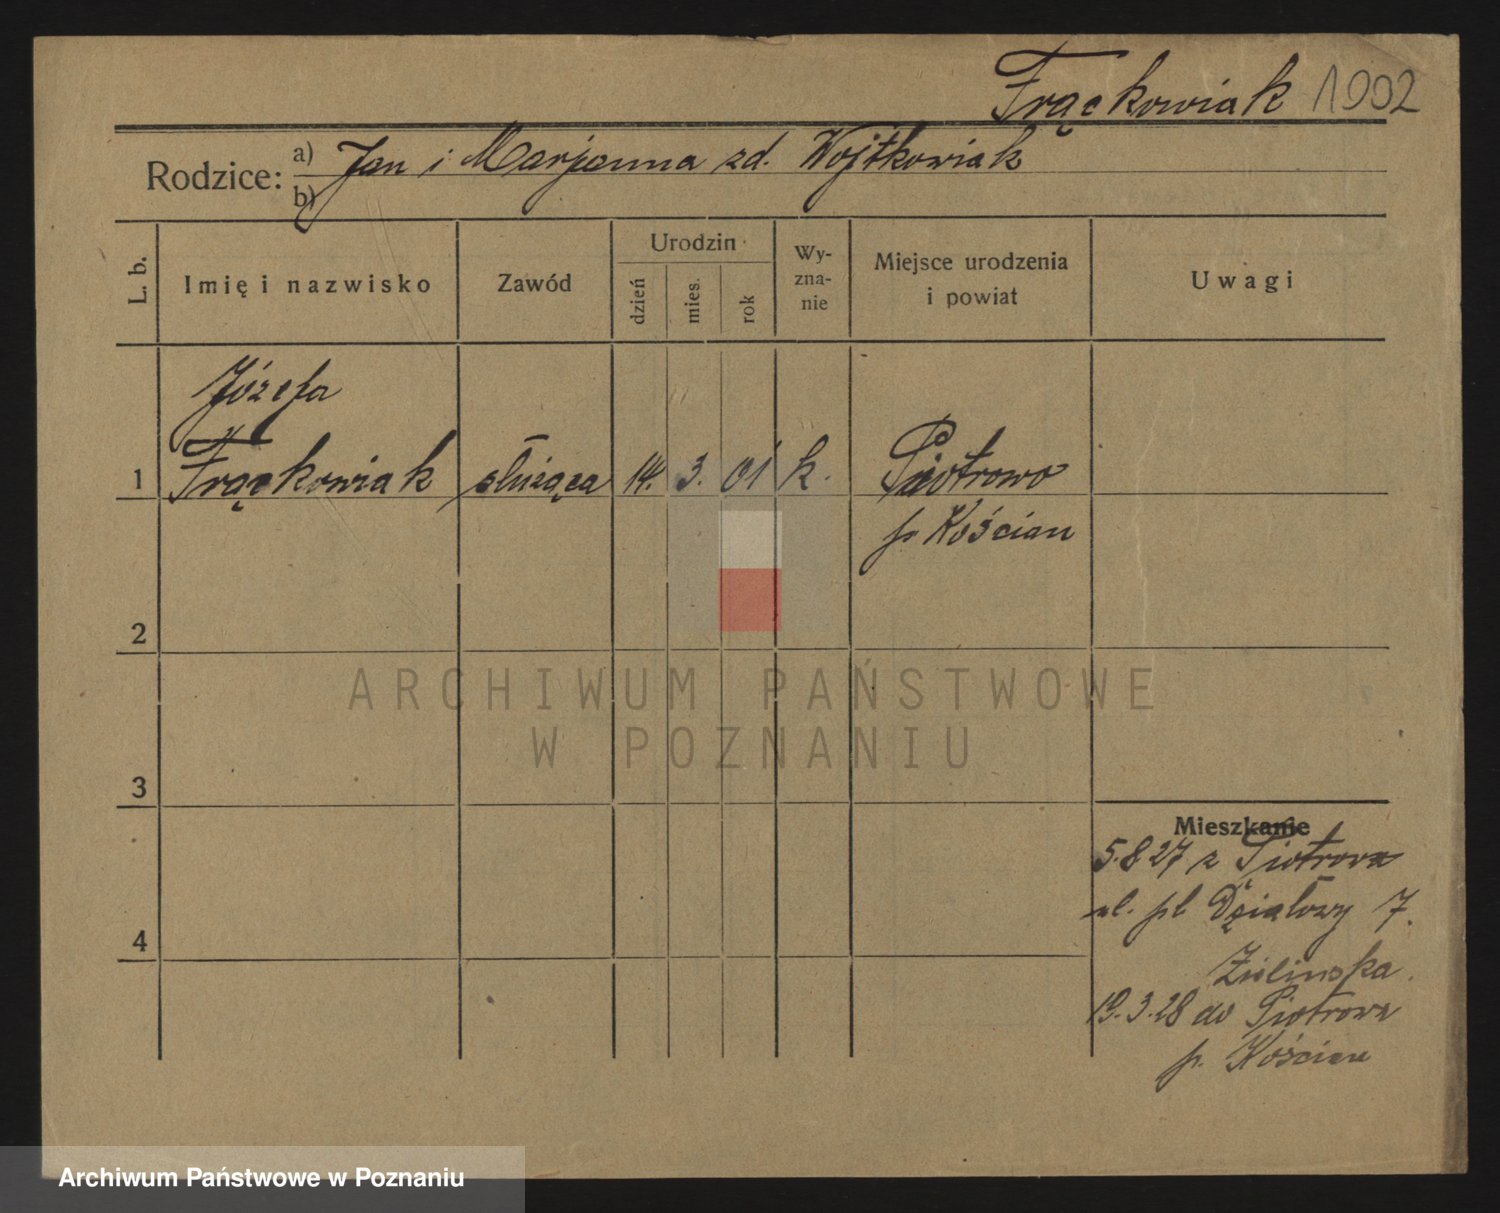 Frąckowiak 1902
Rodzice: a) Jan i Marjanna zd. Wojtkowiak
b)
L. b.
Imię i nazwisko
Zawód
Urodzin
dzień
mies.
rok
Wy-
zna-
nie
Miejsce urodzenia
i powiat
Uwagi
Józefa
1 Frąckowiak służąca 14. 3. 01 k. Piotrowo
p. Kościan
2
ARCHIWUM PAŃSTWOWE
W POZNANIU
3
Mieszkanie
5.8 27 z Piotrowa
ul. pl Działowy 7.
4
Zielinska
19.3.28 do Piotrowa
p. Kościan
Archiwum Państwowe w Poznaniu